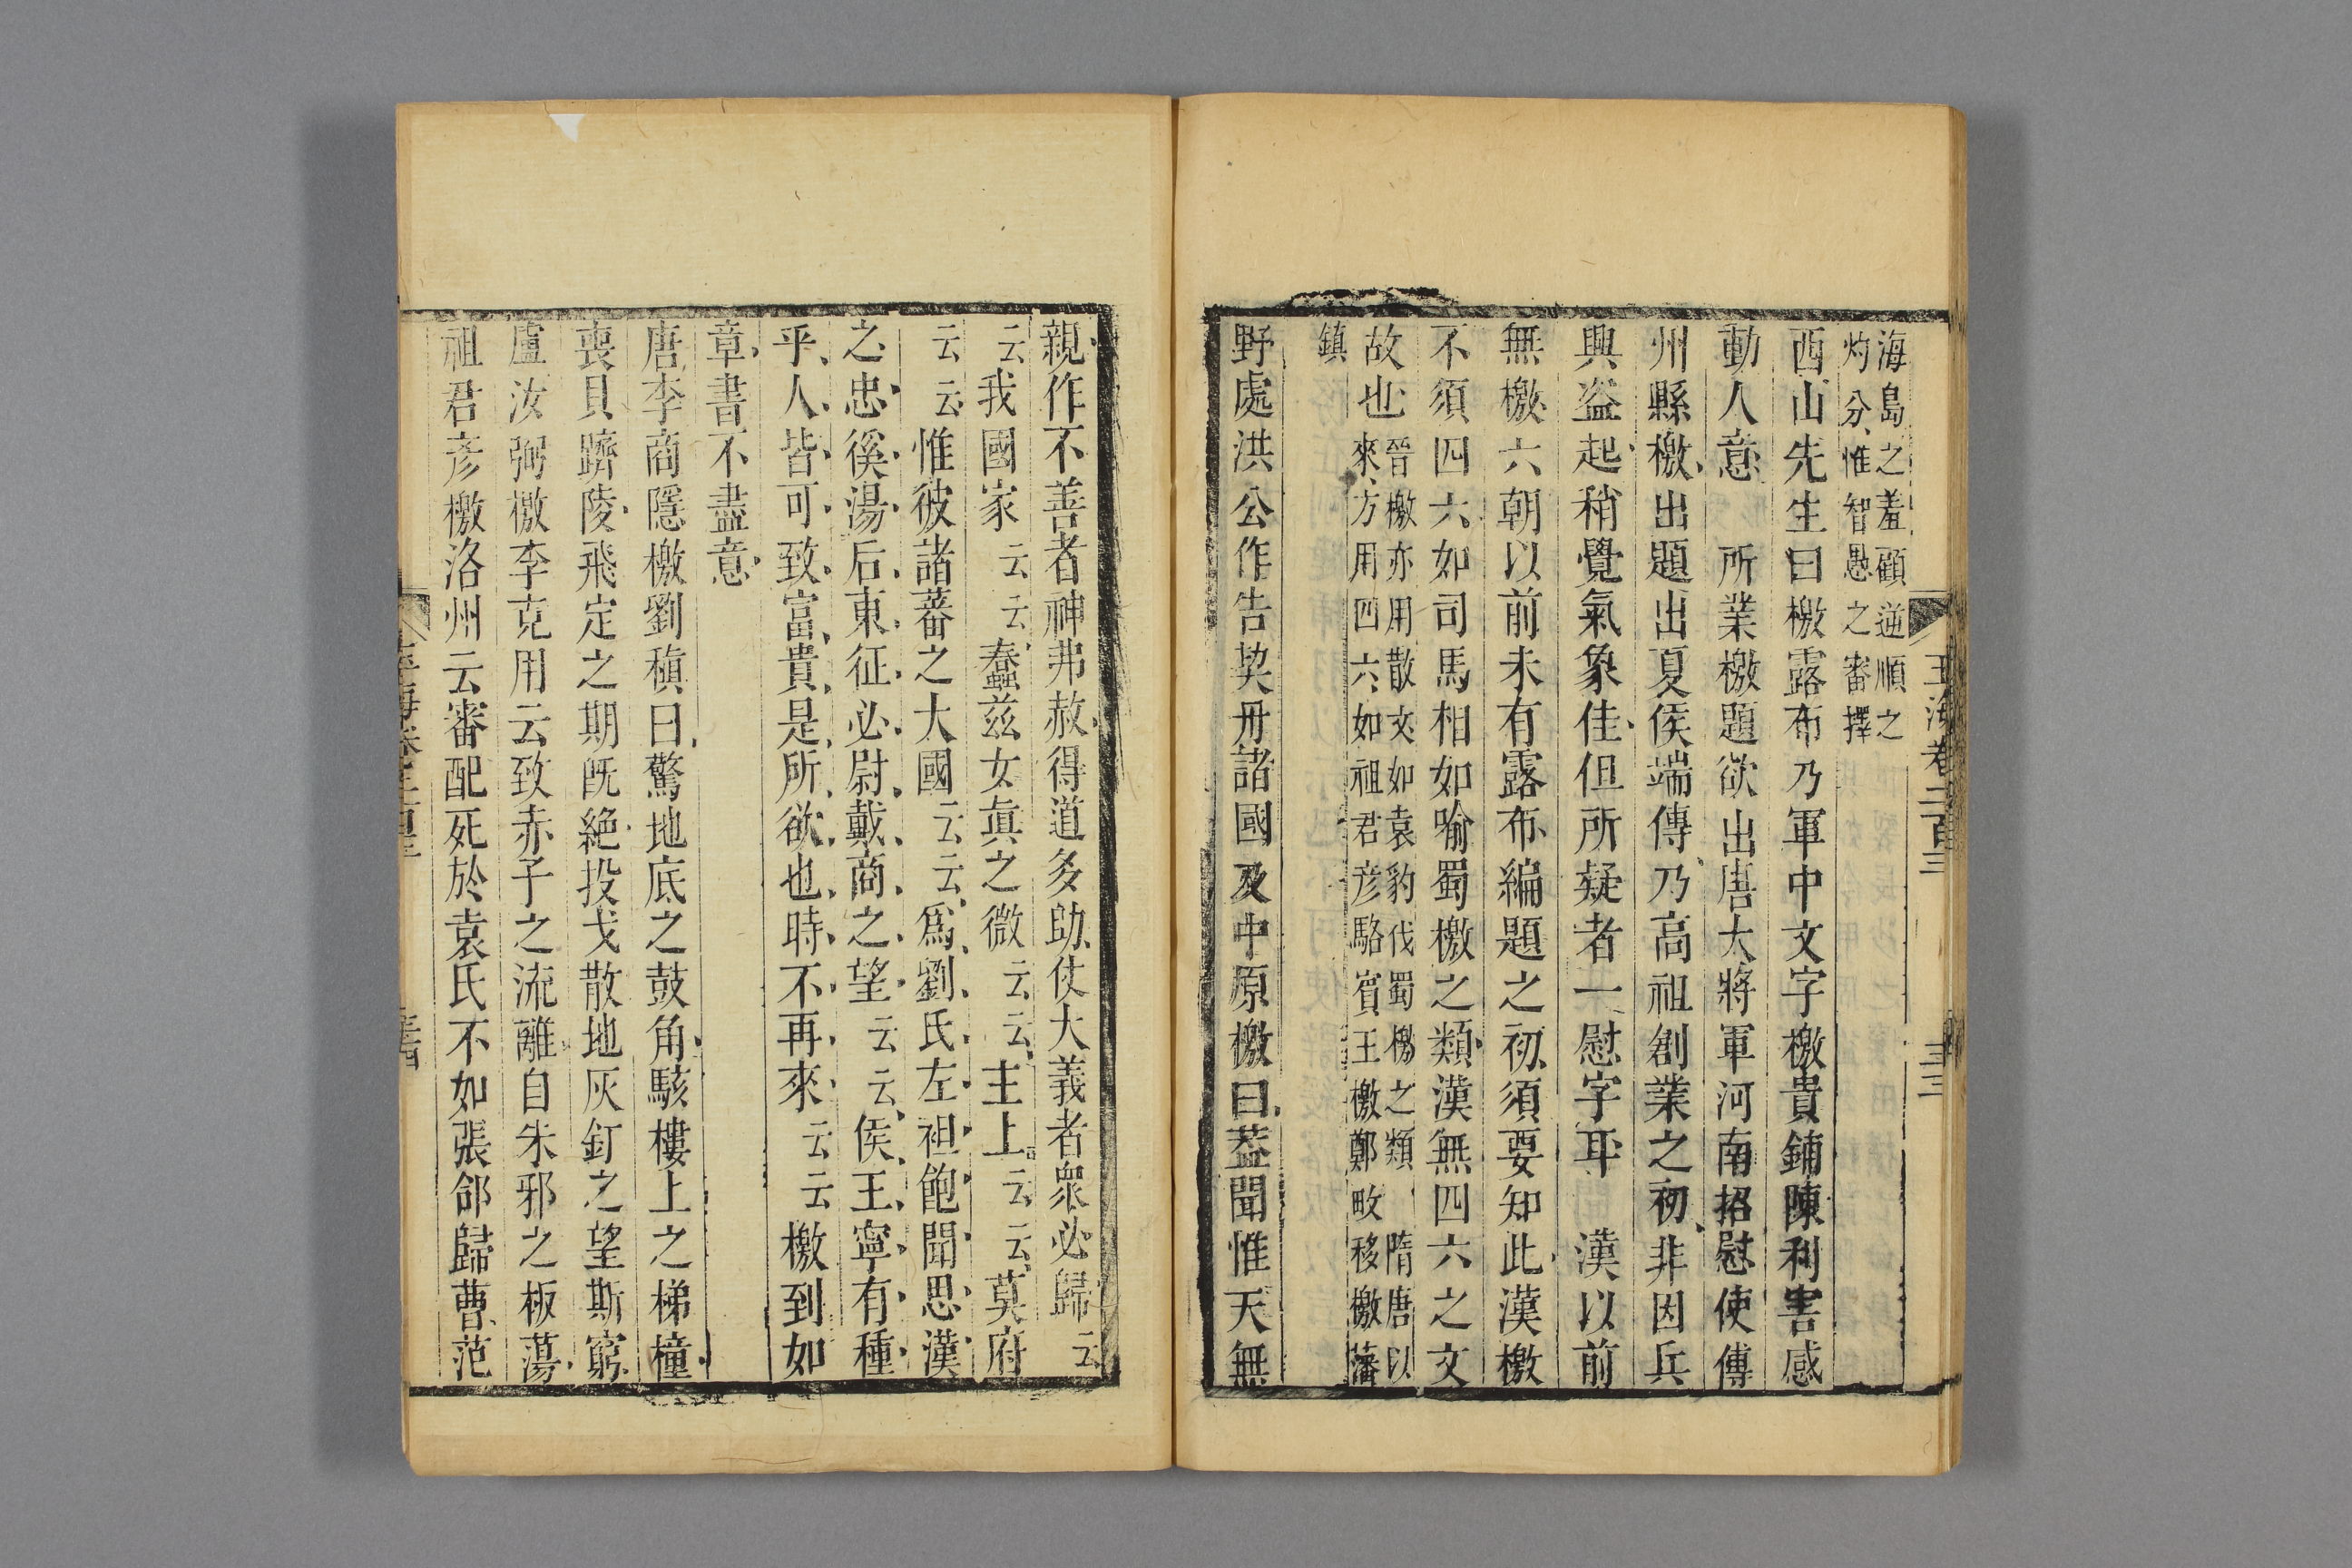 海島之羞顧逆順之
灼分惟智愚之審擇
西山先生曰檄露布乃軍中文字檄貴鋪陳利害感
動人意　所業檄題欲出唐大將軍河南招慰使傳
州縣檄出題出夏侯端傳乃高祖創業之初非因兵
興盜起稍覺氣象佳但所疑者一慰字耳　漢以前
無檄六朝以前未有露布編題之初須要知此漢檄
不須四六如司馬相如喻蜀檄之類漢無四六之文
故也晉檄亦用散文如袁豹伐蜀檄之類　隋唐以
來方用四六如祖君彥駱賓王檄鄭畋移檄藩
鎮
野處洪公作告契丹諸國及中原檄曰葢聞惟天無
親作不善者神弗赦得道多助仗大義者衆必歸云
云我國家云云蠢兹女眞之微云云主上云云莫府
云云惟彼諸蕃之大國云云爲劉氏左袒飽聞思漢
之忠徯湯后東征必尉戴商之望云云侯王寧有種
乎人皆可致富貴是所欲也時不再來云云檄到如
章書不盡意
唐李商隱檄劉稹曰驚地底之鼓角駭樓上之梯橦
喪貝躋陵飛定之期旣絶投戈散地灰釘之望斯窮
盧汝弼檄李克用云致赤子之流離自朱邪之板蕩
祖君彥檄洛州云審配死於袁氏不如張郃歸曹范
玉海卷二百三
三三